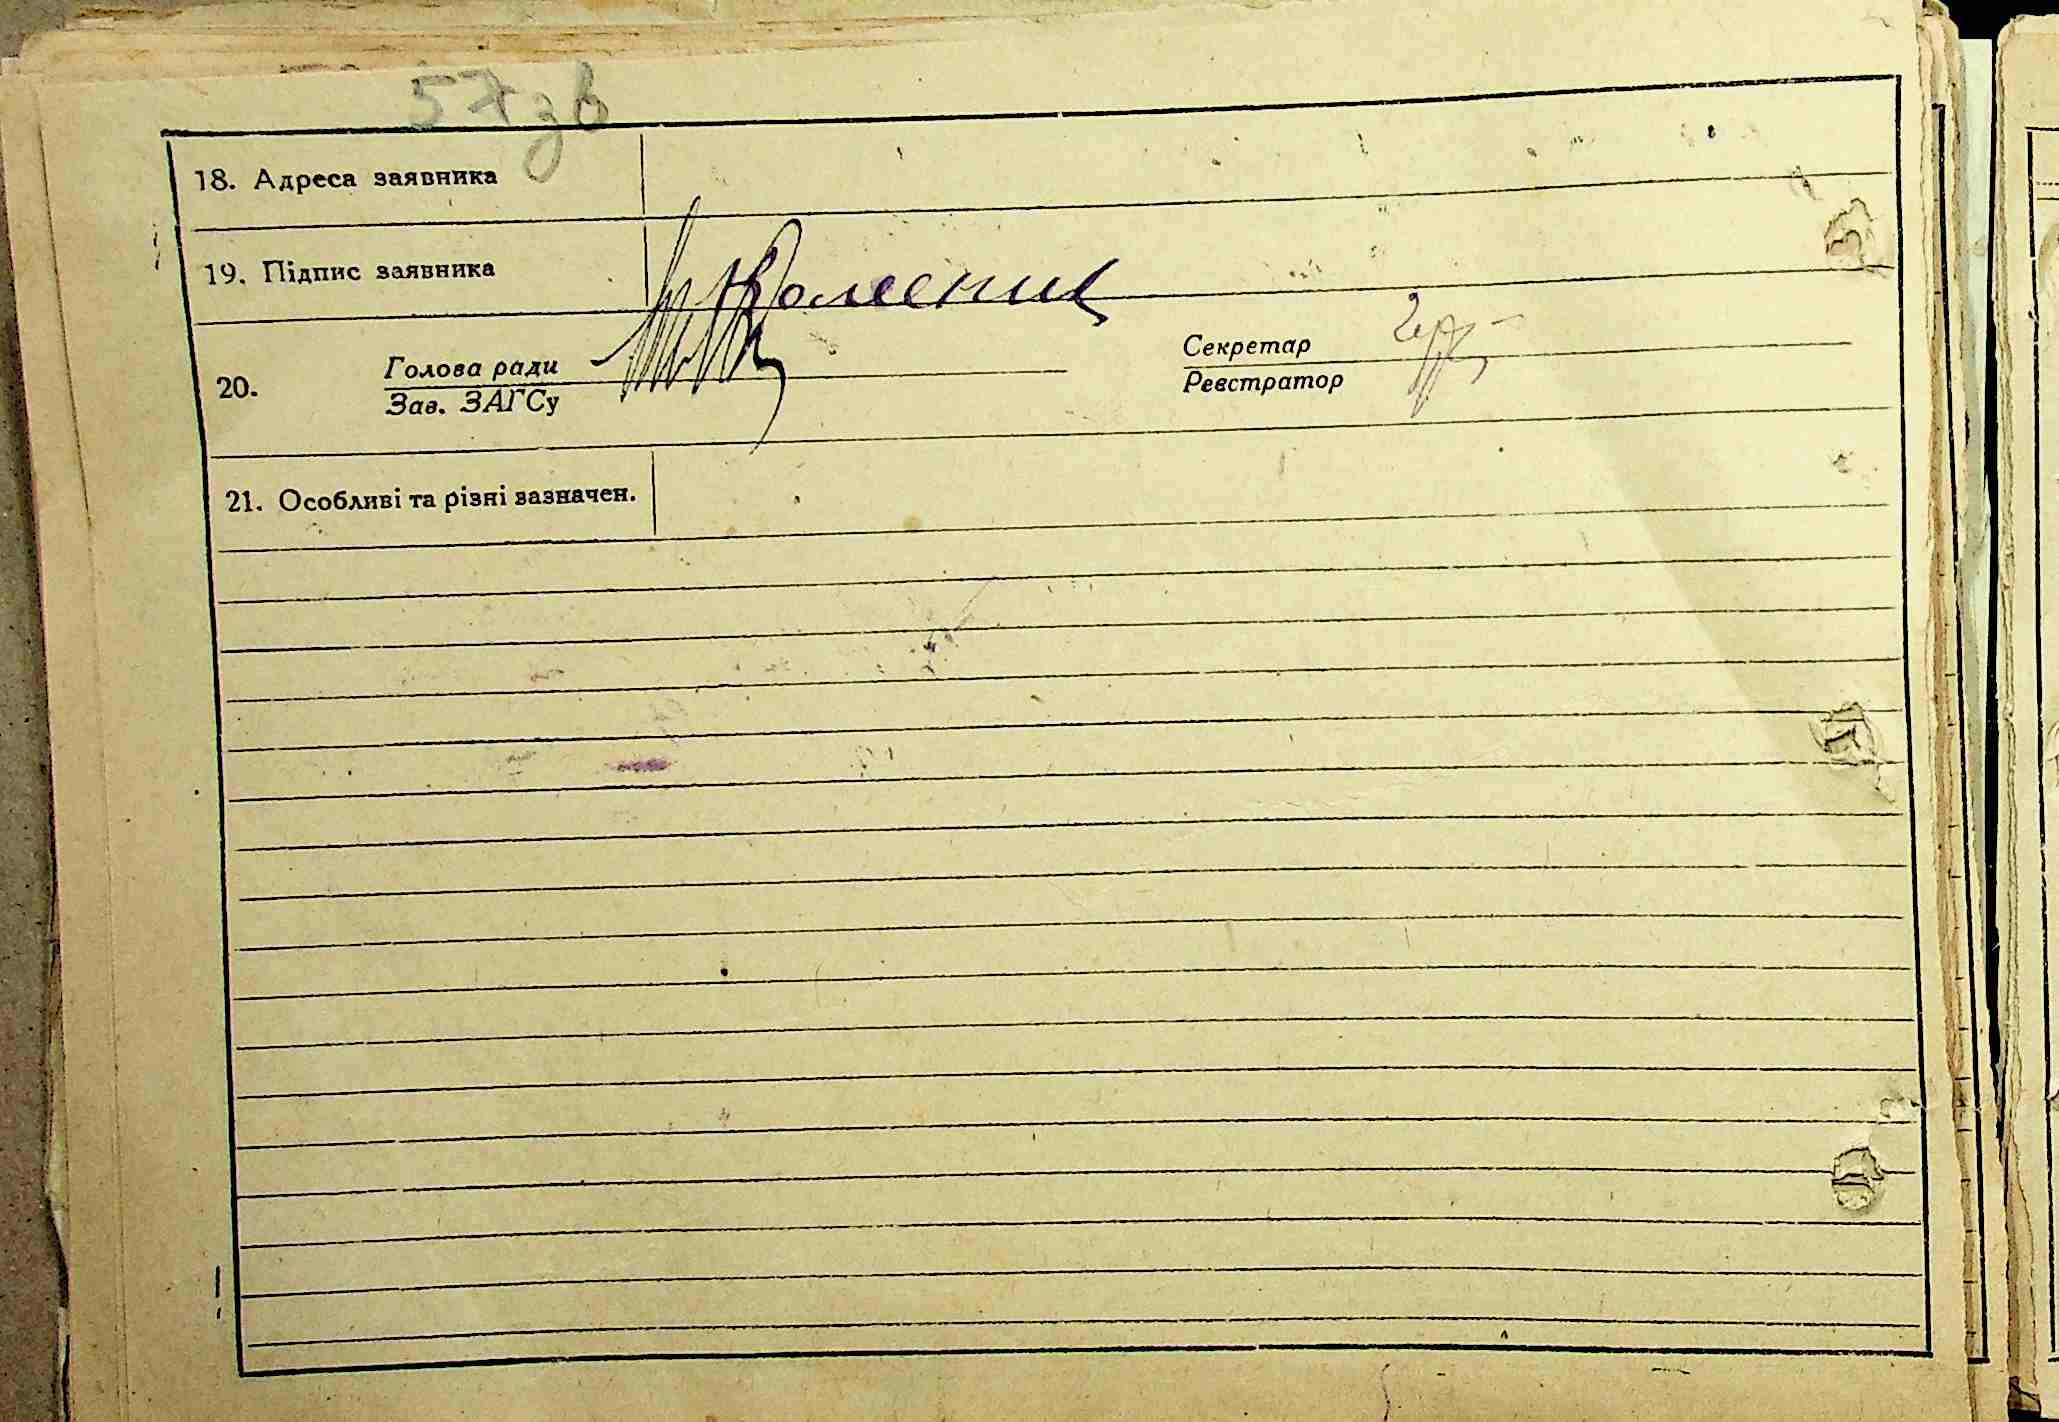 57зв
18. Адреса заявника
19. Підпис заявника
20. Голова ради
Зав. ЗАГСу
Секретар
Реєстратор
21. Особливі та різні зазначен.